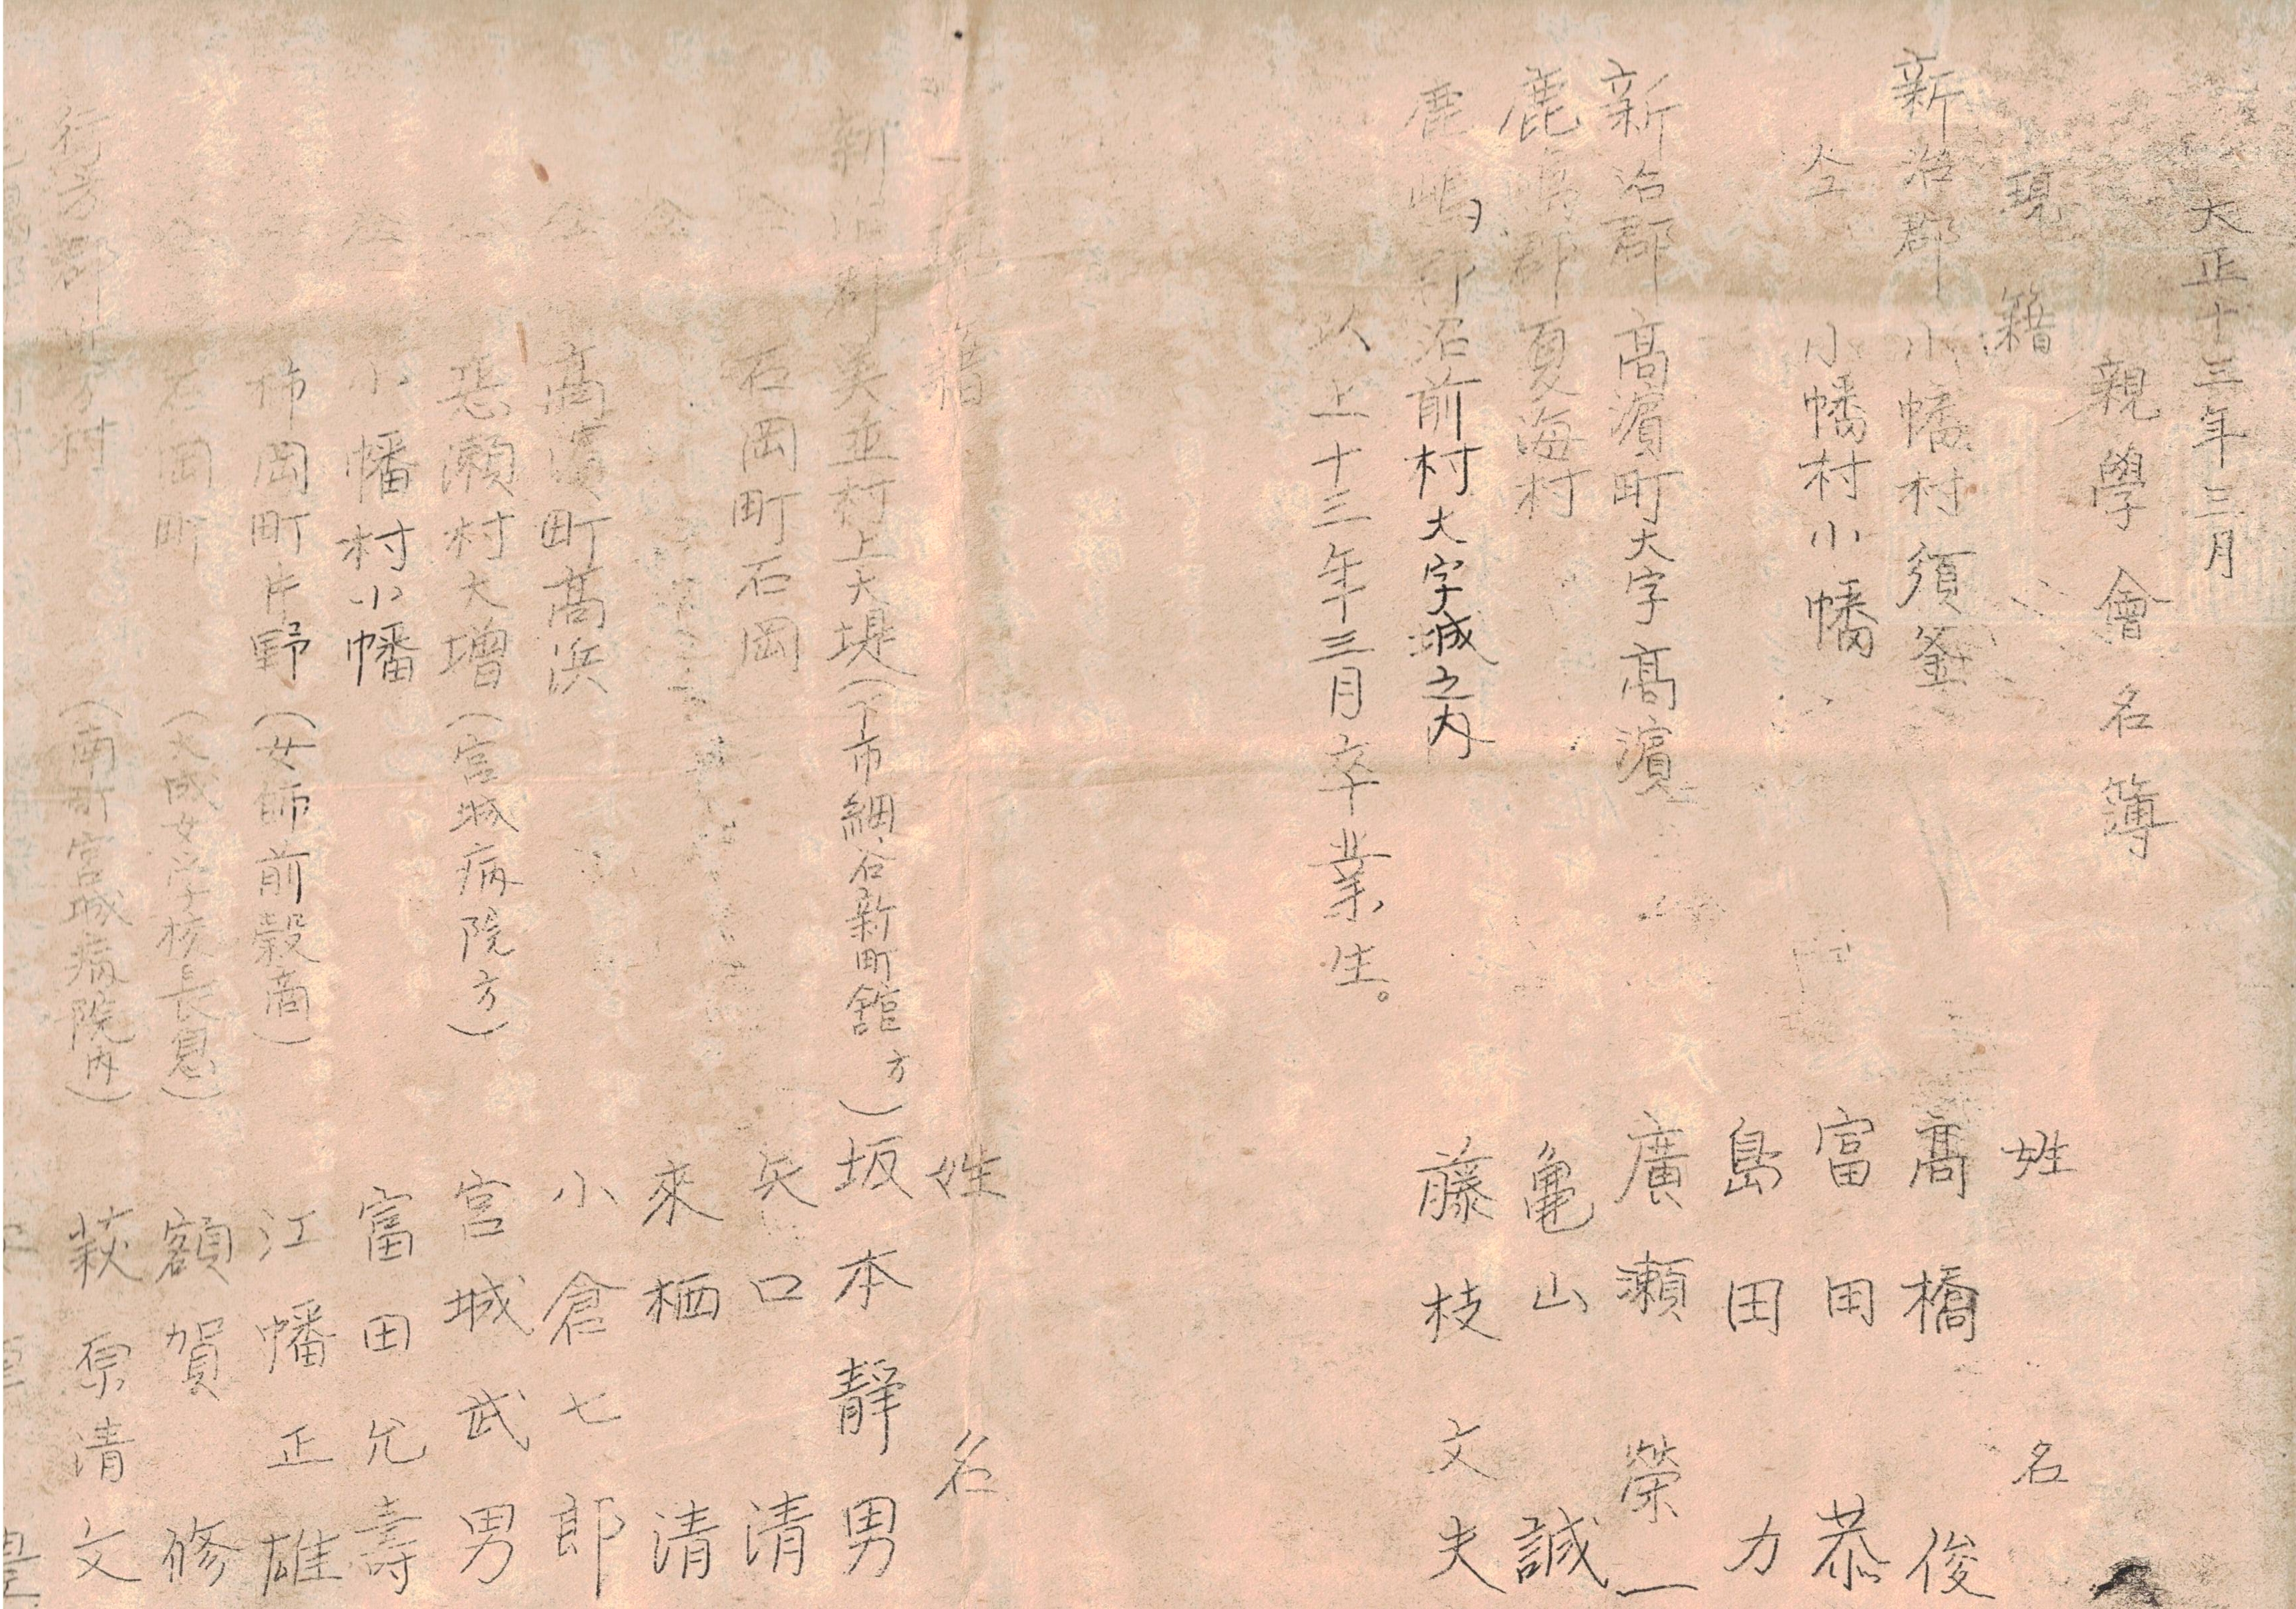 大正十三年三月
親學會名簿
現籍 姓名
新治郡小幡村須釜 髙橋俊
仝 小幡村小幡 富田恭
島田力
新治郡髙濵町大字髙濵 廣瀬榮一
鹿嶋郡夏海村 亀山誠
鹿嶋郡沼前村大字城之内 藤枝文夫
以上十三年三月卒業生。
現籍 姓名
新治郡美並村上大堤(下市細谷新町舘方) 坂本靜男
仝 石岡町石岡 矢口清
仝 來栖清
仝 髙濵町髙浜 小倉七郎
仝 恋瀬村大增(宮城病院方) 宮城武男
仝 小幡村小幡 富田允壽
柿岡町片野(女師前穀商) 江幡正雄
仝 石岡町(大成女学校長息) 額賀修
行方郡行方村(南町宮城病院内) 萩原清文